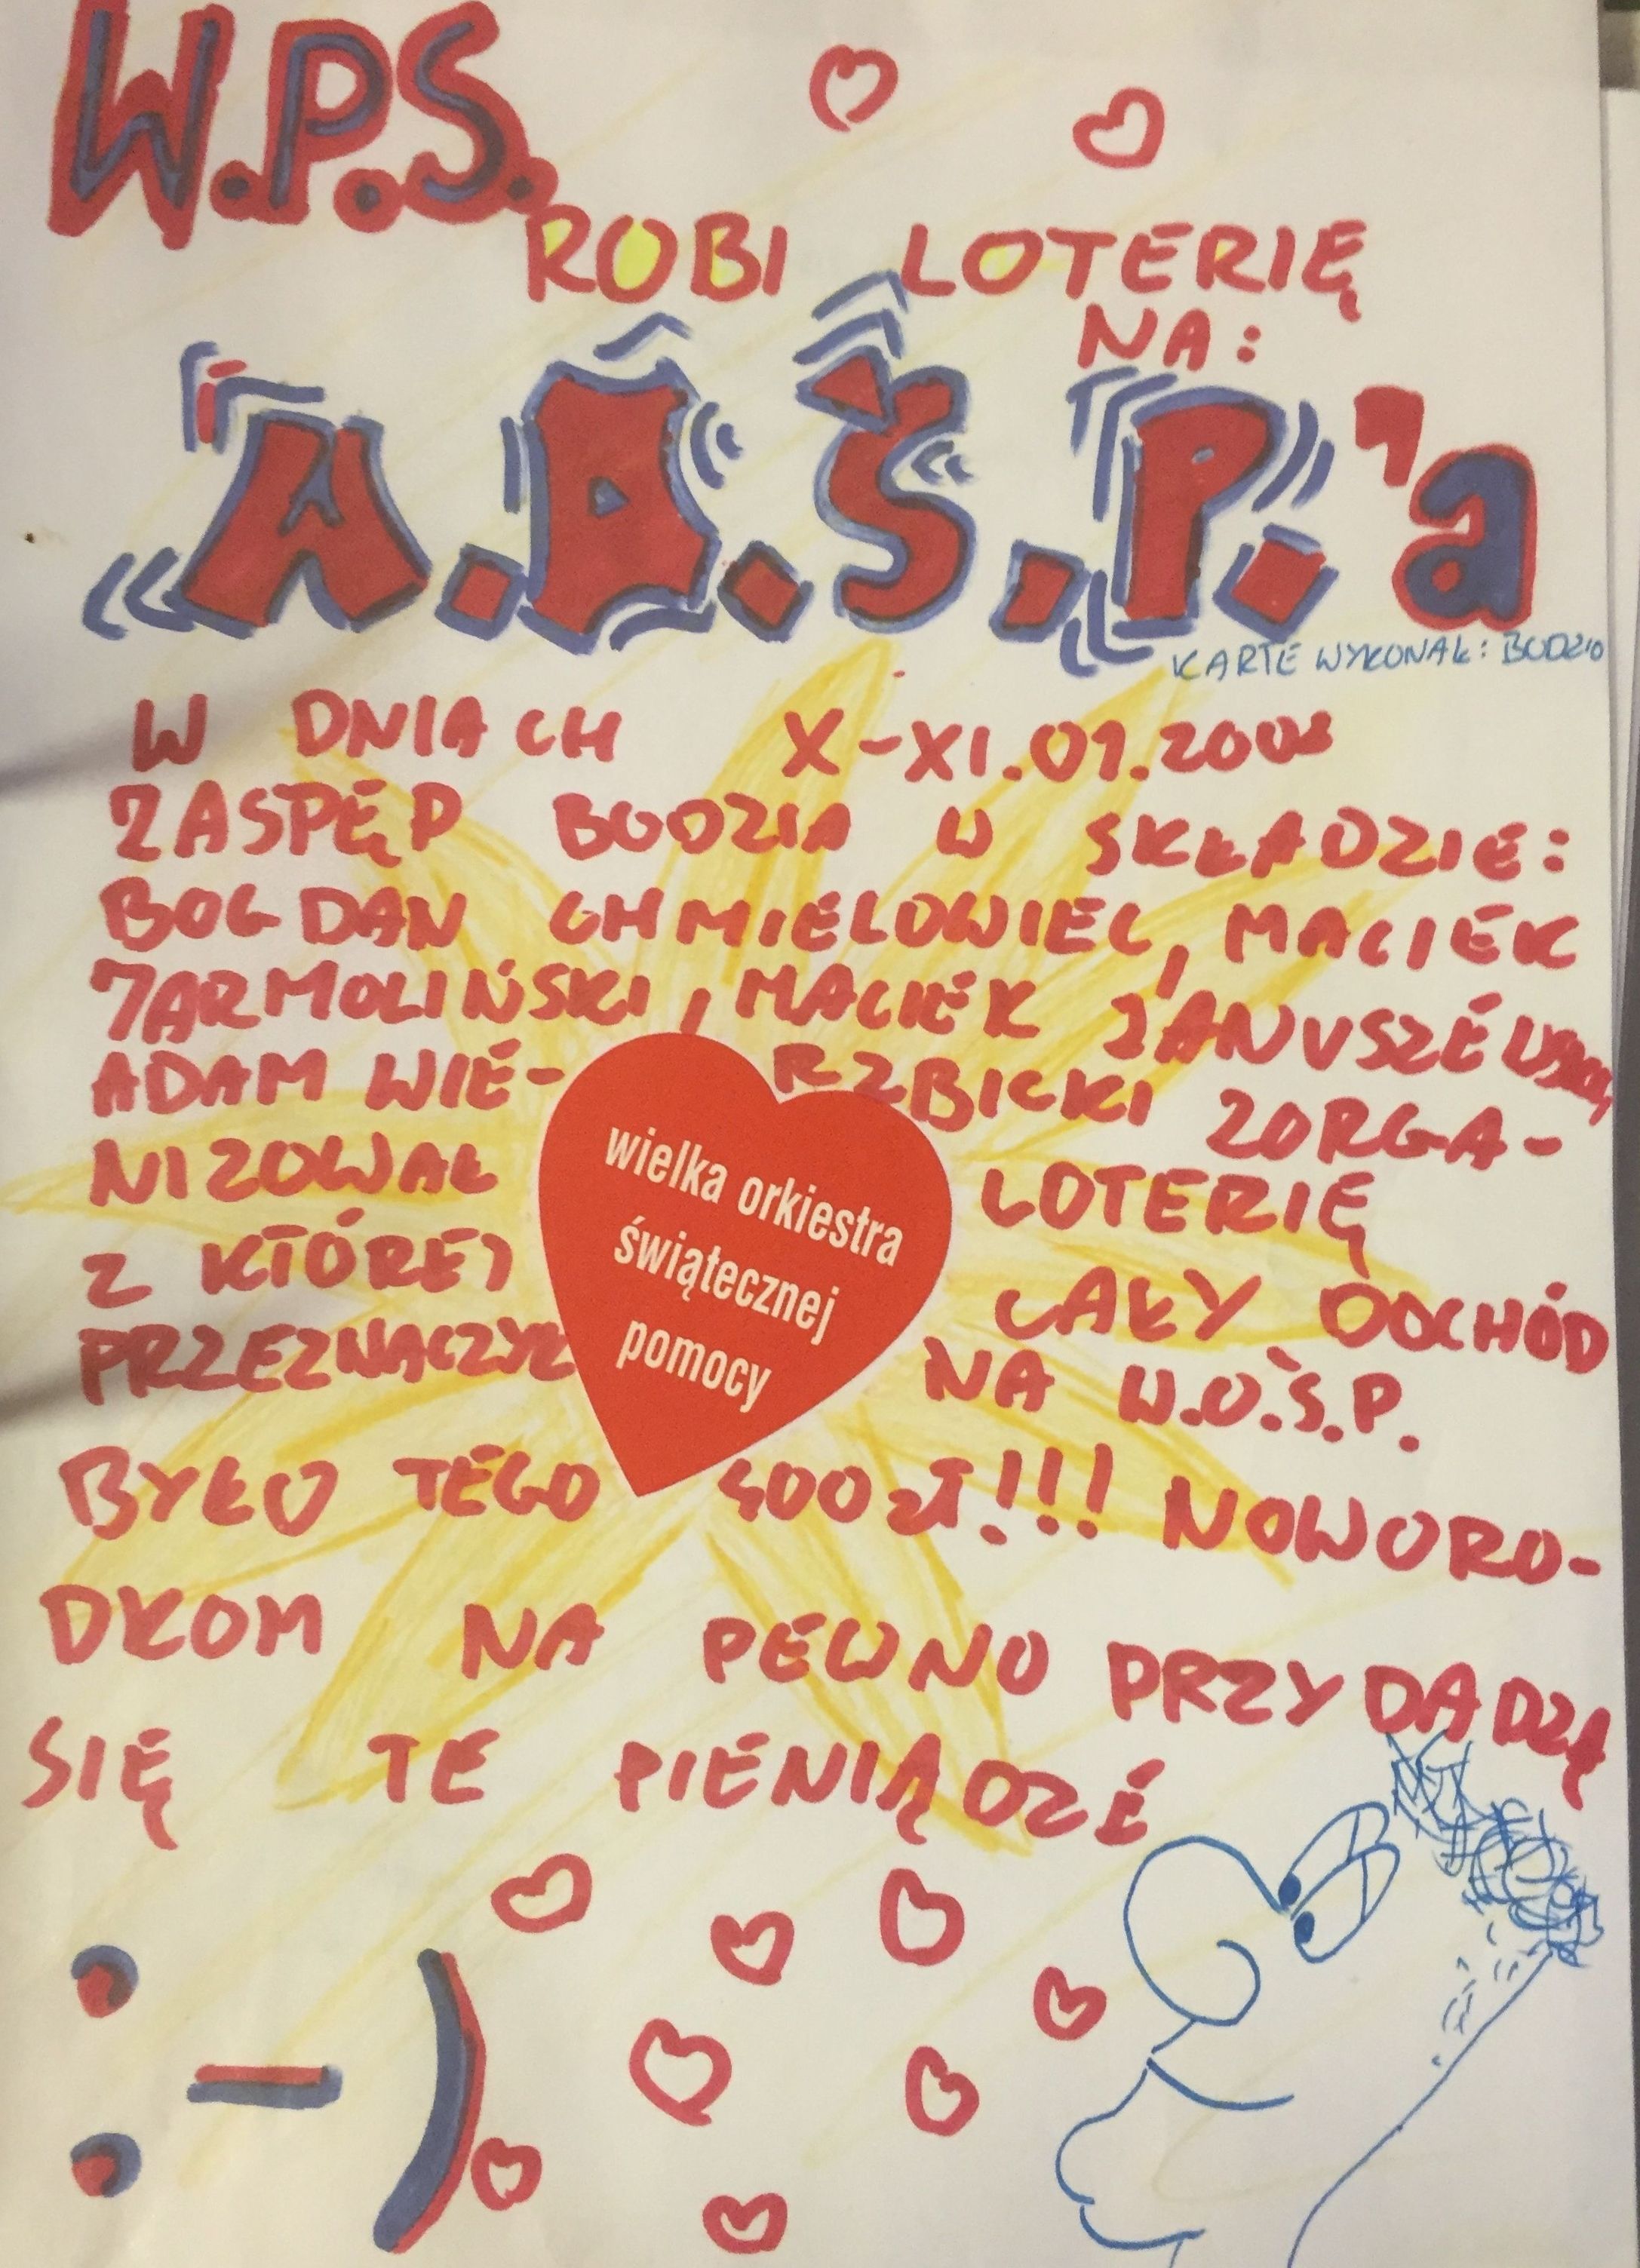 W.P.S.
ROBI LOTERIĘ
NA:
W.O.Ś.P.'a
KARTE WYKONAŁ: BODZIO
W DNIACH X-XI.01.200
ZASPĘP BODZIA W SKŁADZIE:
BOGDAN CHMIELOWIEC, MACIEK
JARMOLIŃSKI, MACIEK JANUSZEWSKI,
ADAM WIE- RZBICKI ZORGA-
NIZOWAŁ LOTERIĘ
Z KTÓREJ CAŁY DOCHÓD
PRZEZNACZYŁ NA W.O.Ś.P.
wielka orkiestra
świątecznej
pomocy
BYŁO TEGO 400 zł!!! NOWORO-
DKOM NA PEWNO PRZYDADZĄ
SIĘ TE PIENIĄDZE
:-)